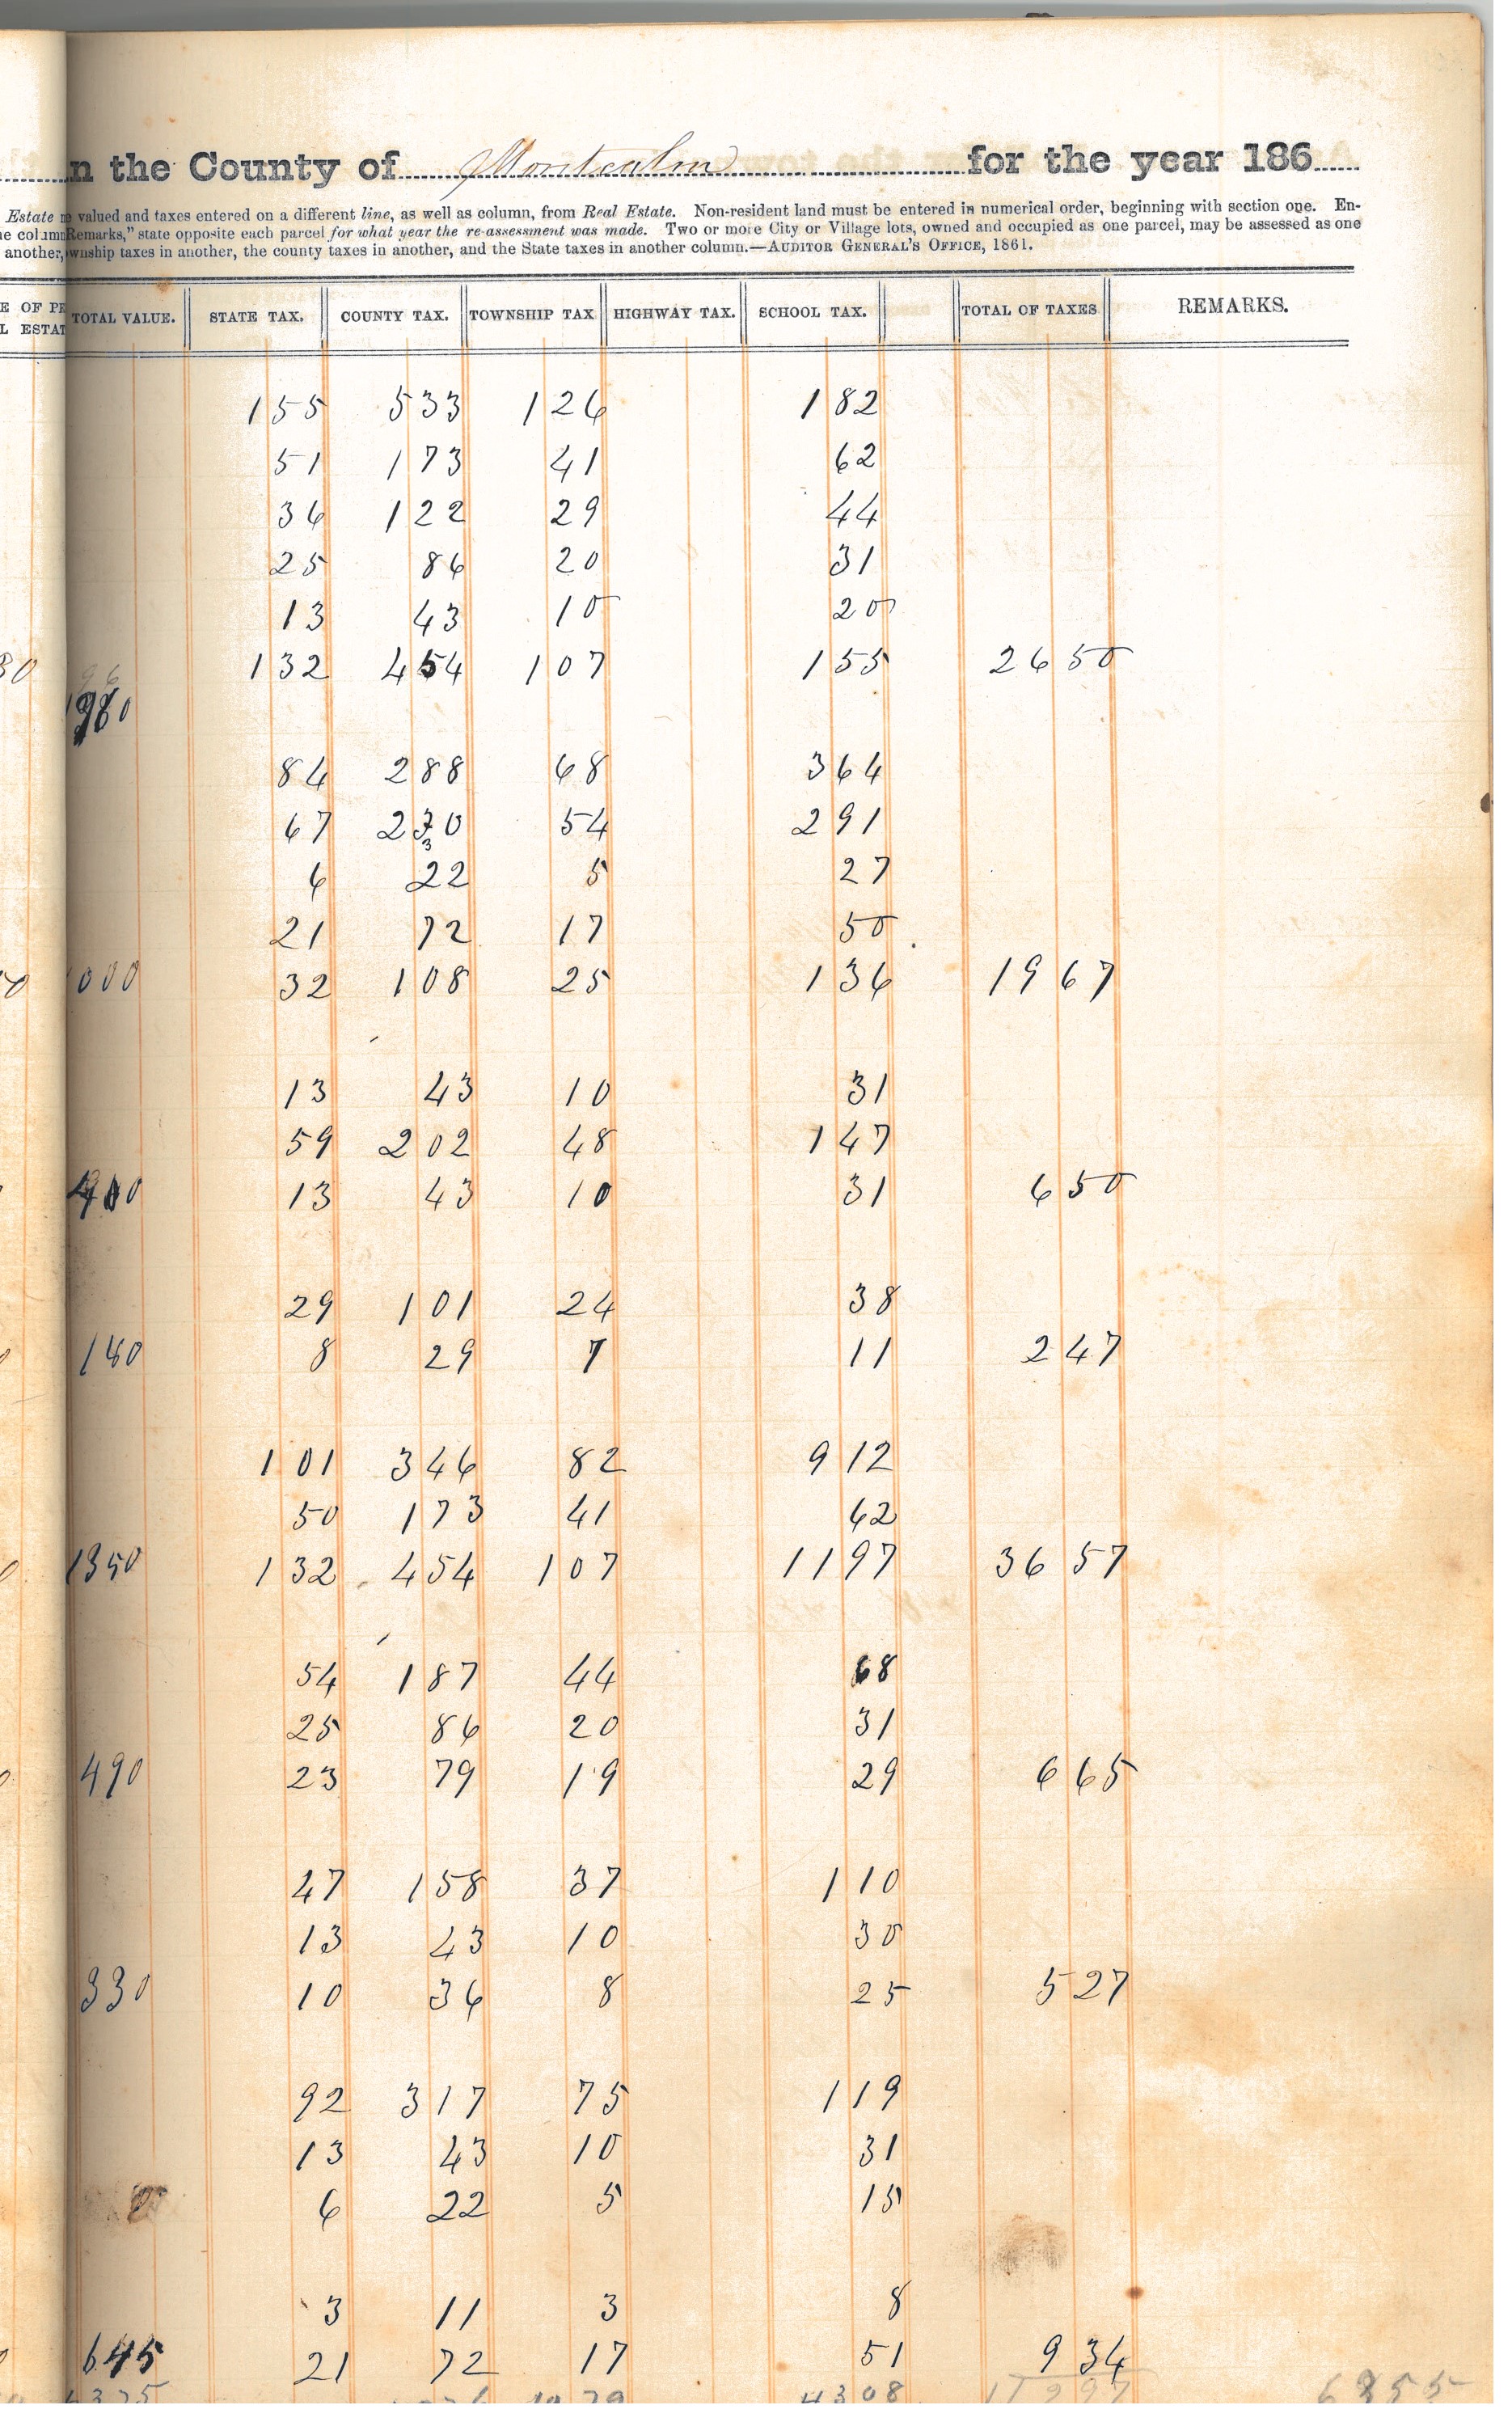 n the County of Montcalm for the year 186
Estate ne valued and taxes entered on a different line, as well as column, from Real Estate. Non-resident land must be entered in numerical order, beginning with section one. En-
ne column Remarks," state opposite each parcel for what year the re-assessment was made. Two or more City or Village lots, owned and occupied as one parcel, may be assessed as one
another, wnship taxes in another, the county taxes in another, and the State taxes in another column.—AUDITOR GENERAL'S OFFICE, 1861.
E OF PE TOTAL VALUE. STATE TAX. COUNTY TAX. TOWNSHIP TAX HIGHWAY TAX. SCHOOL TAX. TOTAL OF TAXES REMARKS.
L ESTAT
1 55 5 33 1 26 1 82
51 1 73 41 62
36 1 22 29 44
25 86 20 31
13 43 10 20
30 1 32 4 54 1 07 1 55 26 50
84 2 88 68 3 64
67 2 30 54 2 91
6 22 5 27
21 72 17 50
1000 32 1 08 25 1 36 19 67
13 43 10 31
59 2 02 48 1 47
13 43 10 31 6 50
29 1 01 24 38
140 8 29 7 11 2 47
1 01 3 46 82 9 12
50 1 73 41 62
1350 1 32 4 54 1 07 11 97 36 57
54 1 87 44 68
25 86 20 31
490 23 79 19 29 6 65
47 1 58 37 1 10
13 43 10 30
330 10 36 8 25 5 27
92 3 17 75 1 19
13 43 10 31
6 22 5 15
3 11 3 8
645 21 72 17 51 9 34
43 08